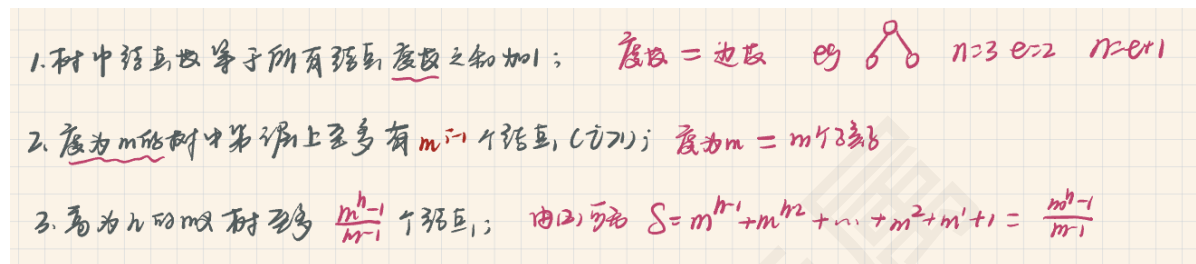 1. 树中结点数等于所有结点度数之和加1； 度数 = 边数 eg n=3 e=2 n=e+1
2. 度为m的树中第i层上至多有 m^{i-1} 个结点 (i≥1)； 度为m = m个孩子
3. 高为h的m叉树至多 \frac{m^h-1}{m-1} 个结点； 由(2)可知 S = m^{h-1}+m^{h-2}+...+m^2+m^1+1 = \frac{m^h-1}{m-1}